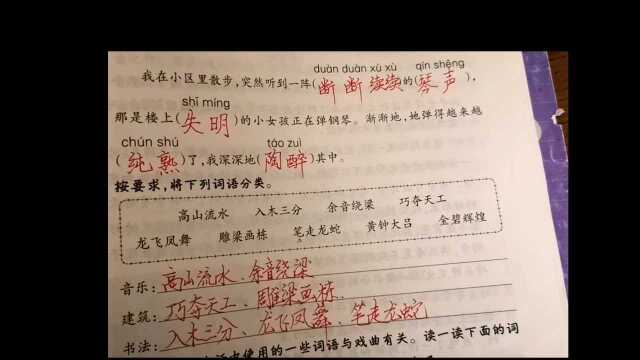 duàn duàn xù xù qín shēng
我在小区里散步,突然听到一阵(断断续续)的(琴声),
shī míng
那是楼上(失明)的小女孩正在弹钢琴。渐渐地,她弹得越来越
chún shú táo zuì
(纯熟)了,我深深地(陶醉)其中。
按要求,将下列词语分类。
高山流水 入木三分 余音绕梁 巧夺天工
龙飞凤舞 雕梁画栋 笔走龙蛇 黄钟大吕 金碧辉煌
音乐:高山流水、余音绕梁
建筑:巧夺天工、雕梁画栋
书法:入木三分、龙飞凤舞、笔走龙蛇
使用的一些词语与戏曲有关。读一读下面的词